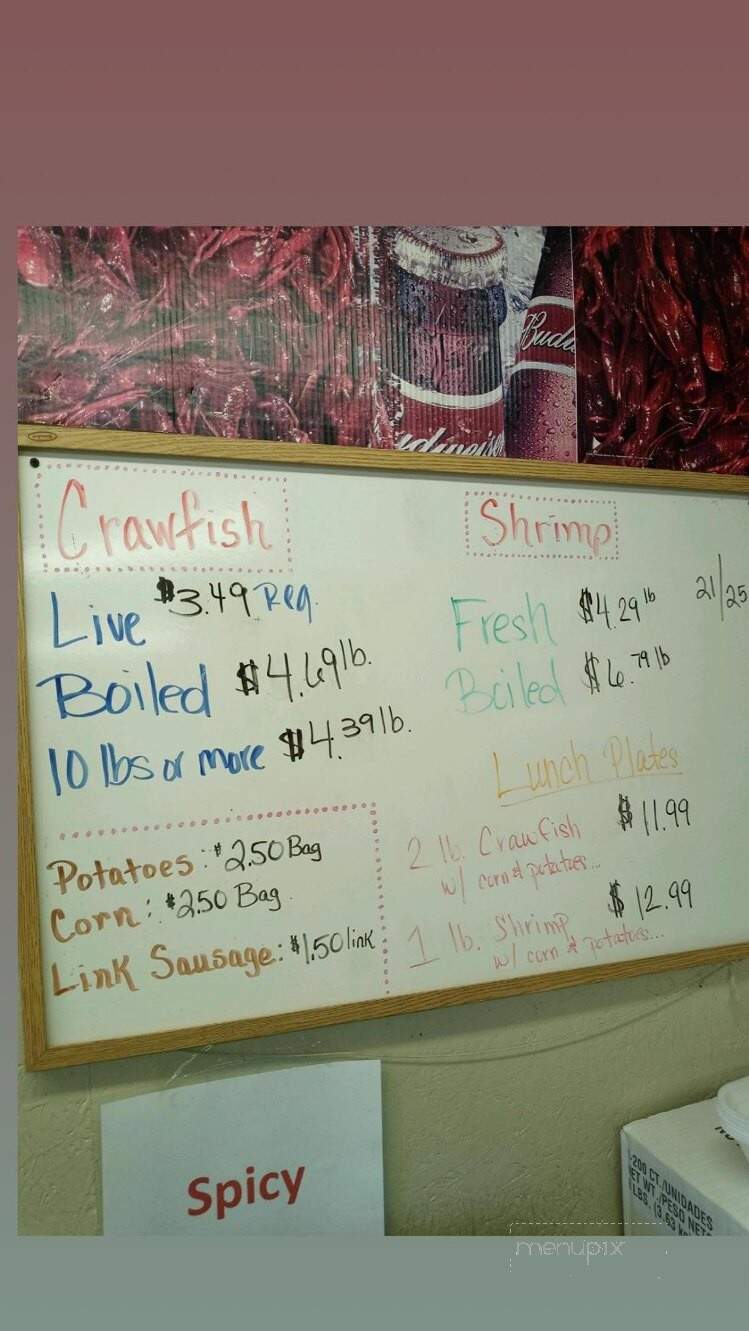 Budw
udweiser
Crawfish
Live $3.49 Reg.
Boiled $4.69 lb.
10 lbs or more $4.39 lb.
Potatoes: $2.50 Bag
Corn: $2.50 Bag.
Link Sausage: $1.50 link
Shrimp
Fresh $4.29 lb 21/25
Boiled $6.79 lb
Lunch Plates
2 lb. Crawfish $11.99
w/ corn & potatoes...
1 lb. Shrimp $12.99
w/ corn & potatoes...
Spicy
-200 CT./UNIDADES
ET WT./PESO NETO
LBS. (3.63 K
menupix